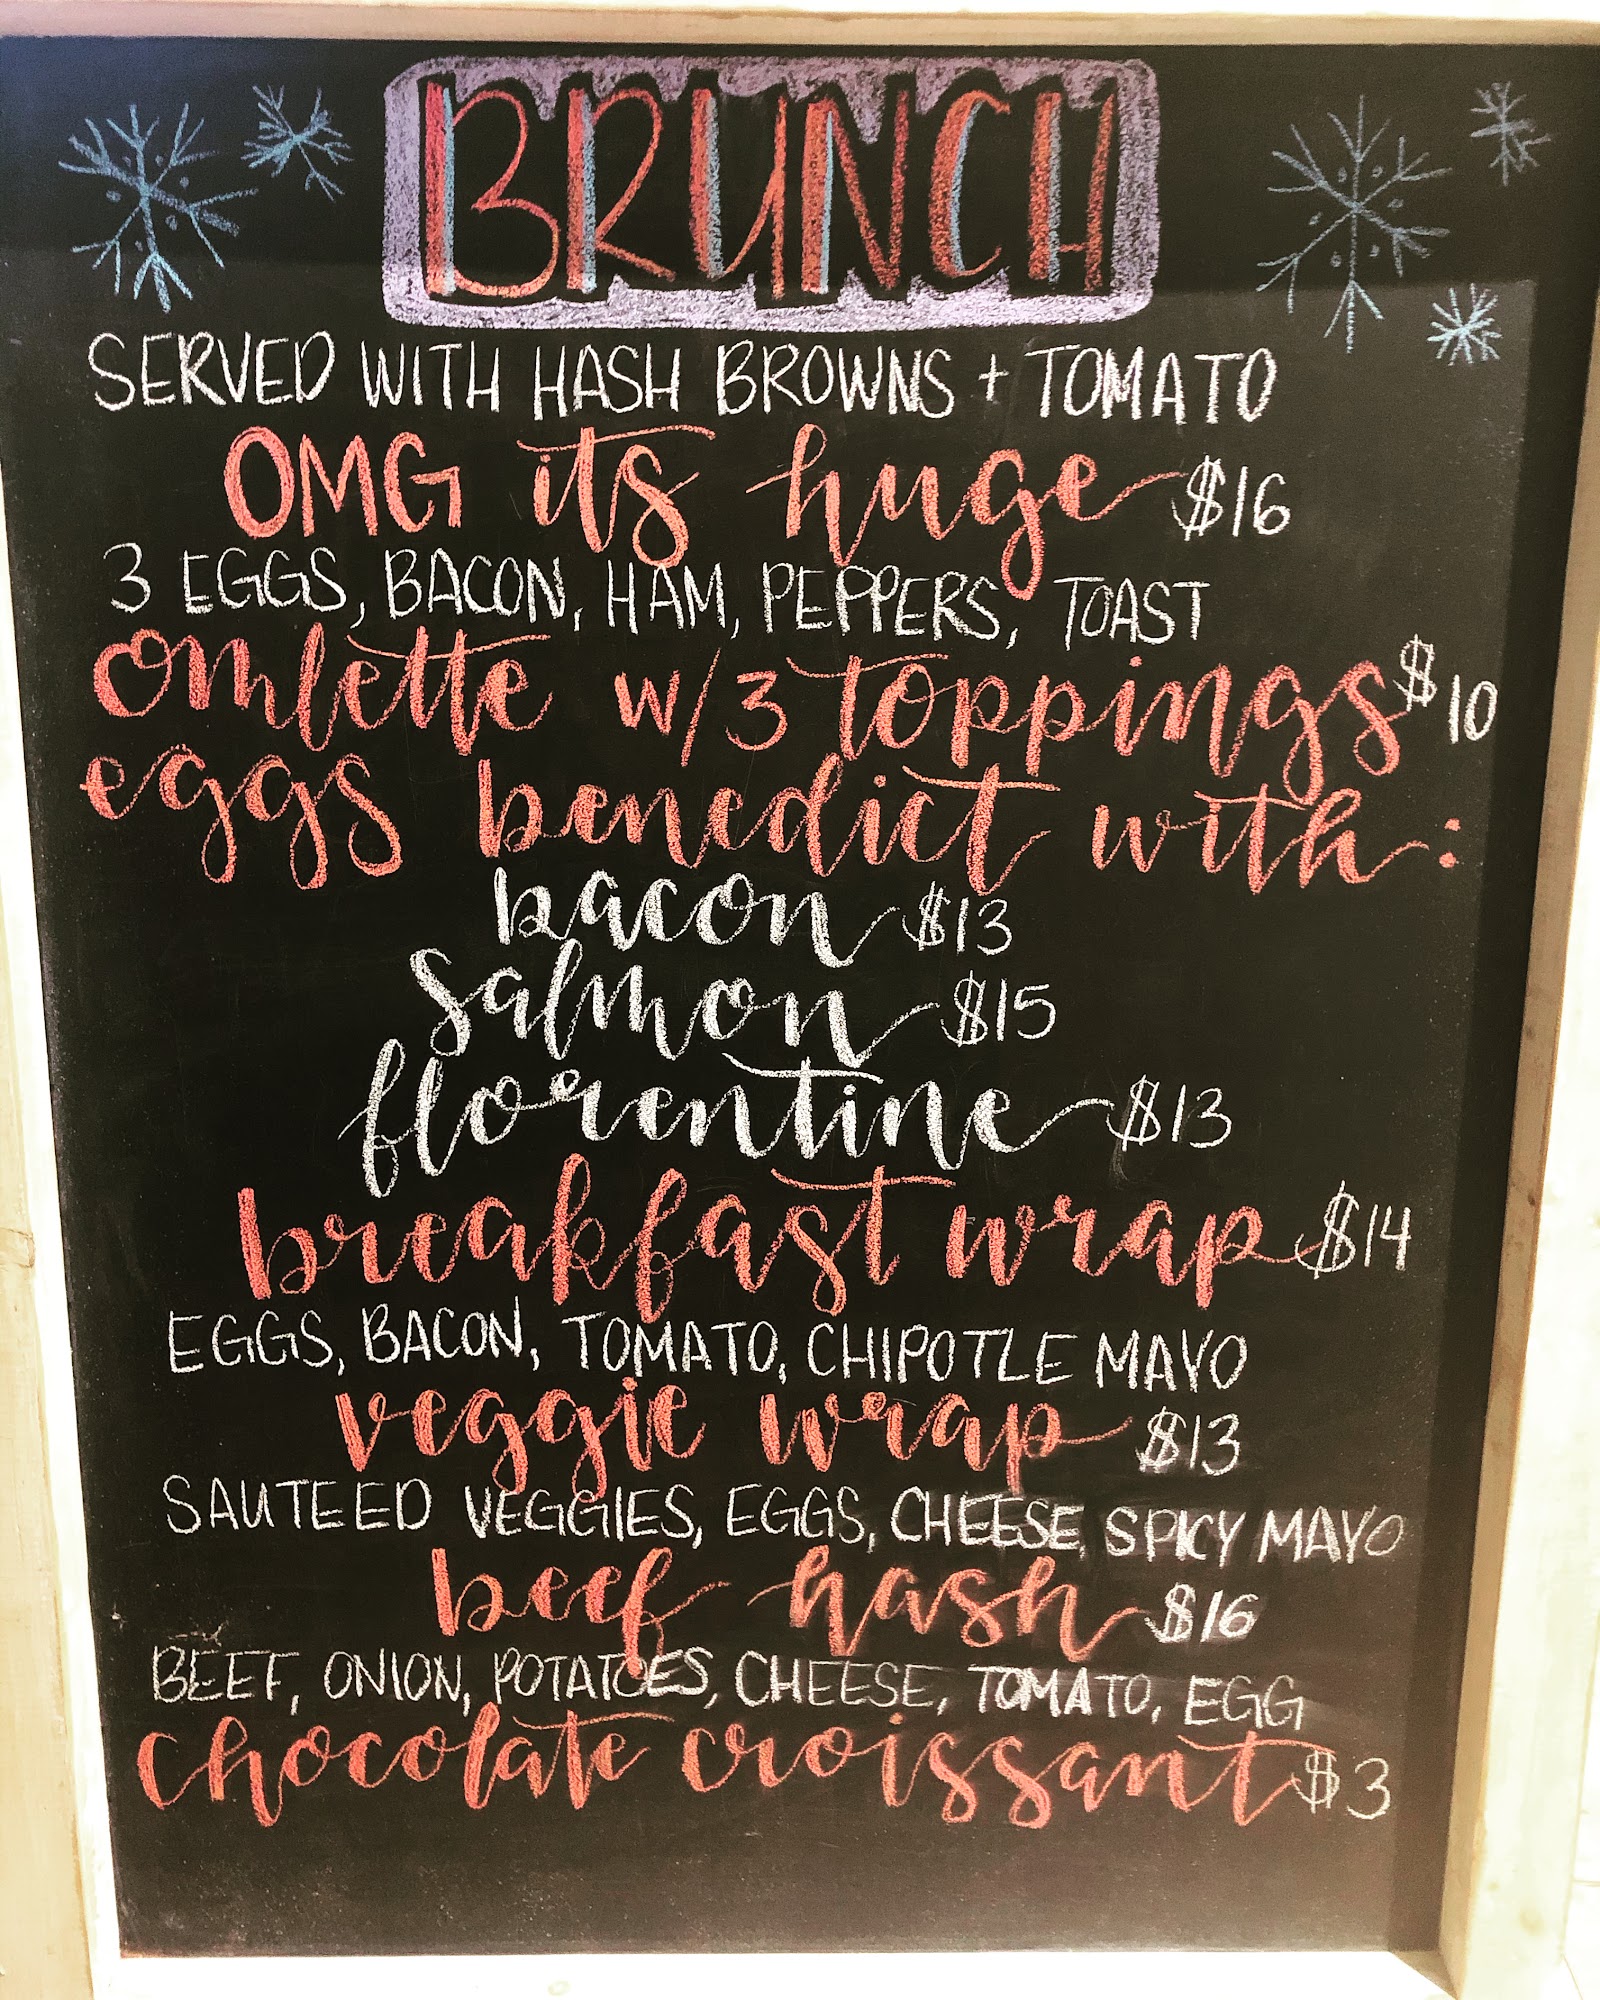 BRUNCH
SERVED WITH HASH BROWNS + TOMATO
OMG its huge $16
3 EGGS, BACON, HAM, PEPPERS, TOAST
omlette w/3 toppings $10
eggs benedict with:
bacon $13
salmon $15
florentine $13
breakfast wrap $14
EGGS, BACON, TOMATO, CHIPOTLE MAYO
veggie wrap $13
SAUTEED VEGGIES, EGGS, CHEESE, SPICY MAYO
beef hash $16
BEEF, ONION, POTATOES, CHEESE, TOMATO, EGG
chocolate croissant $3